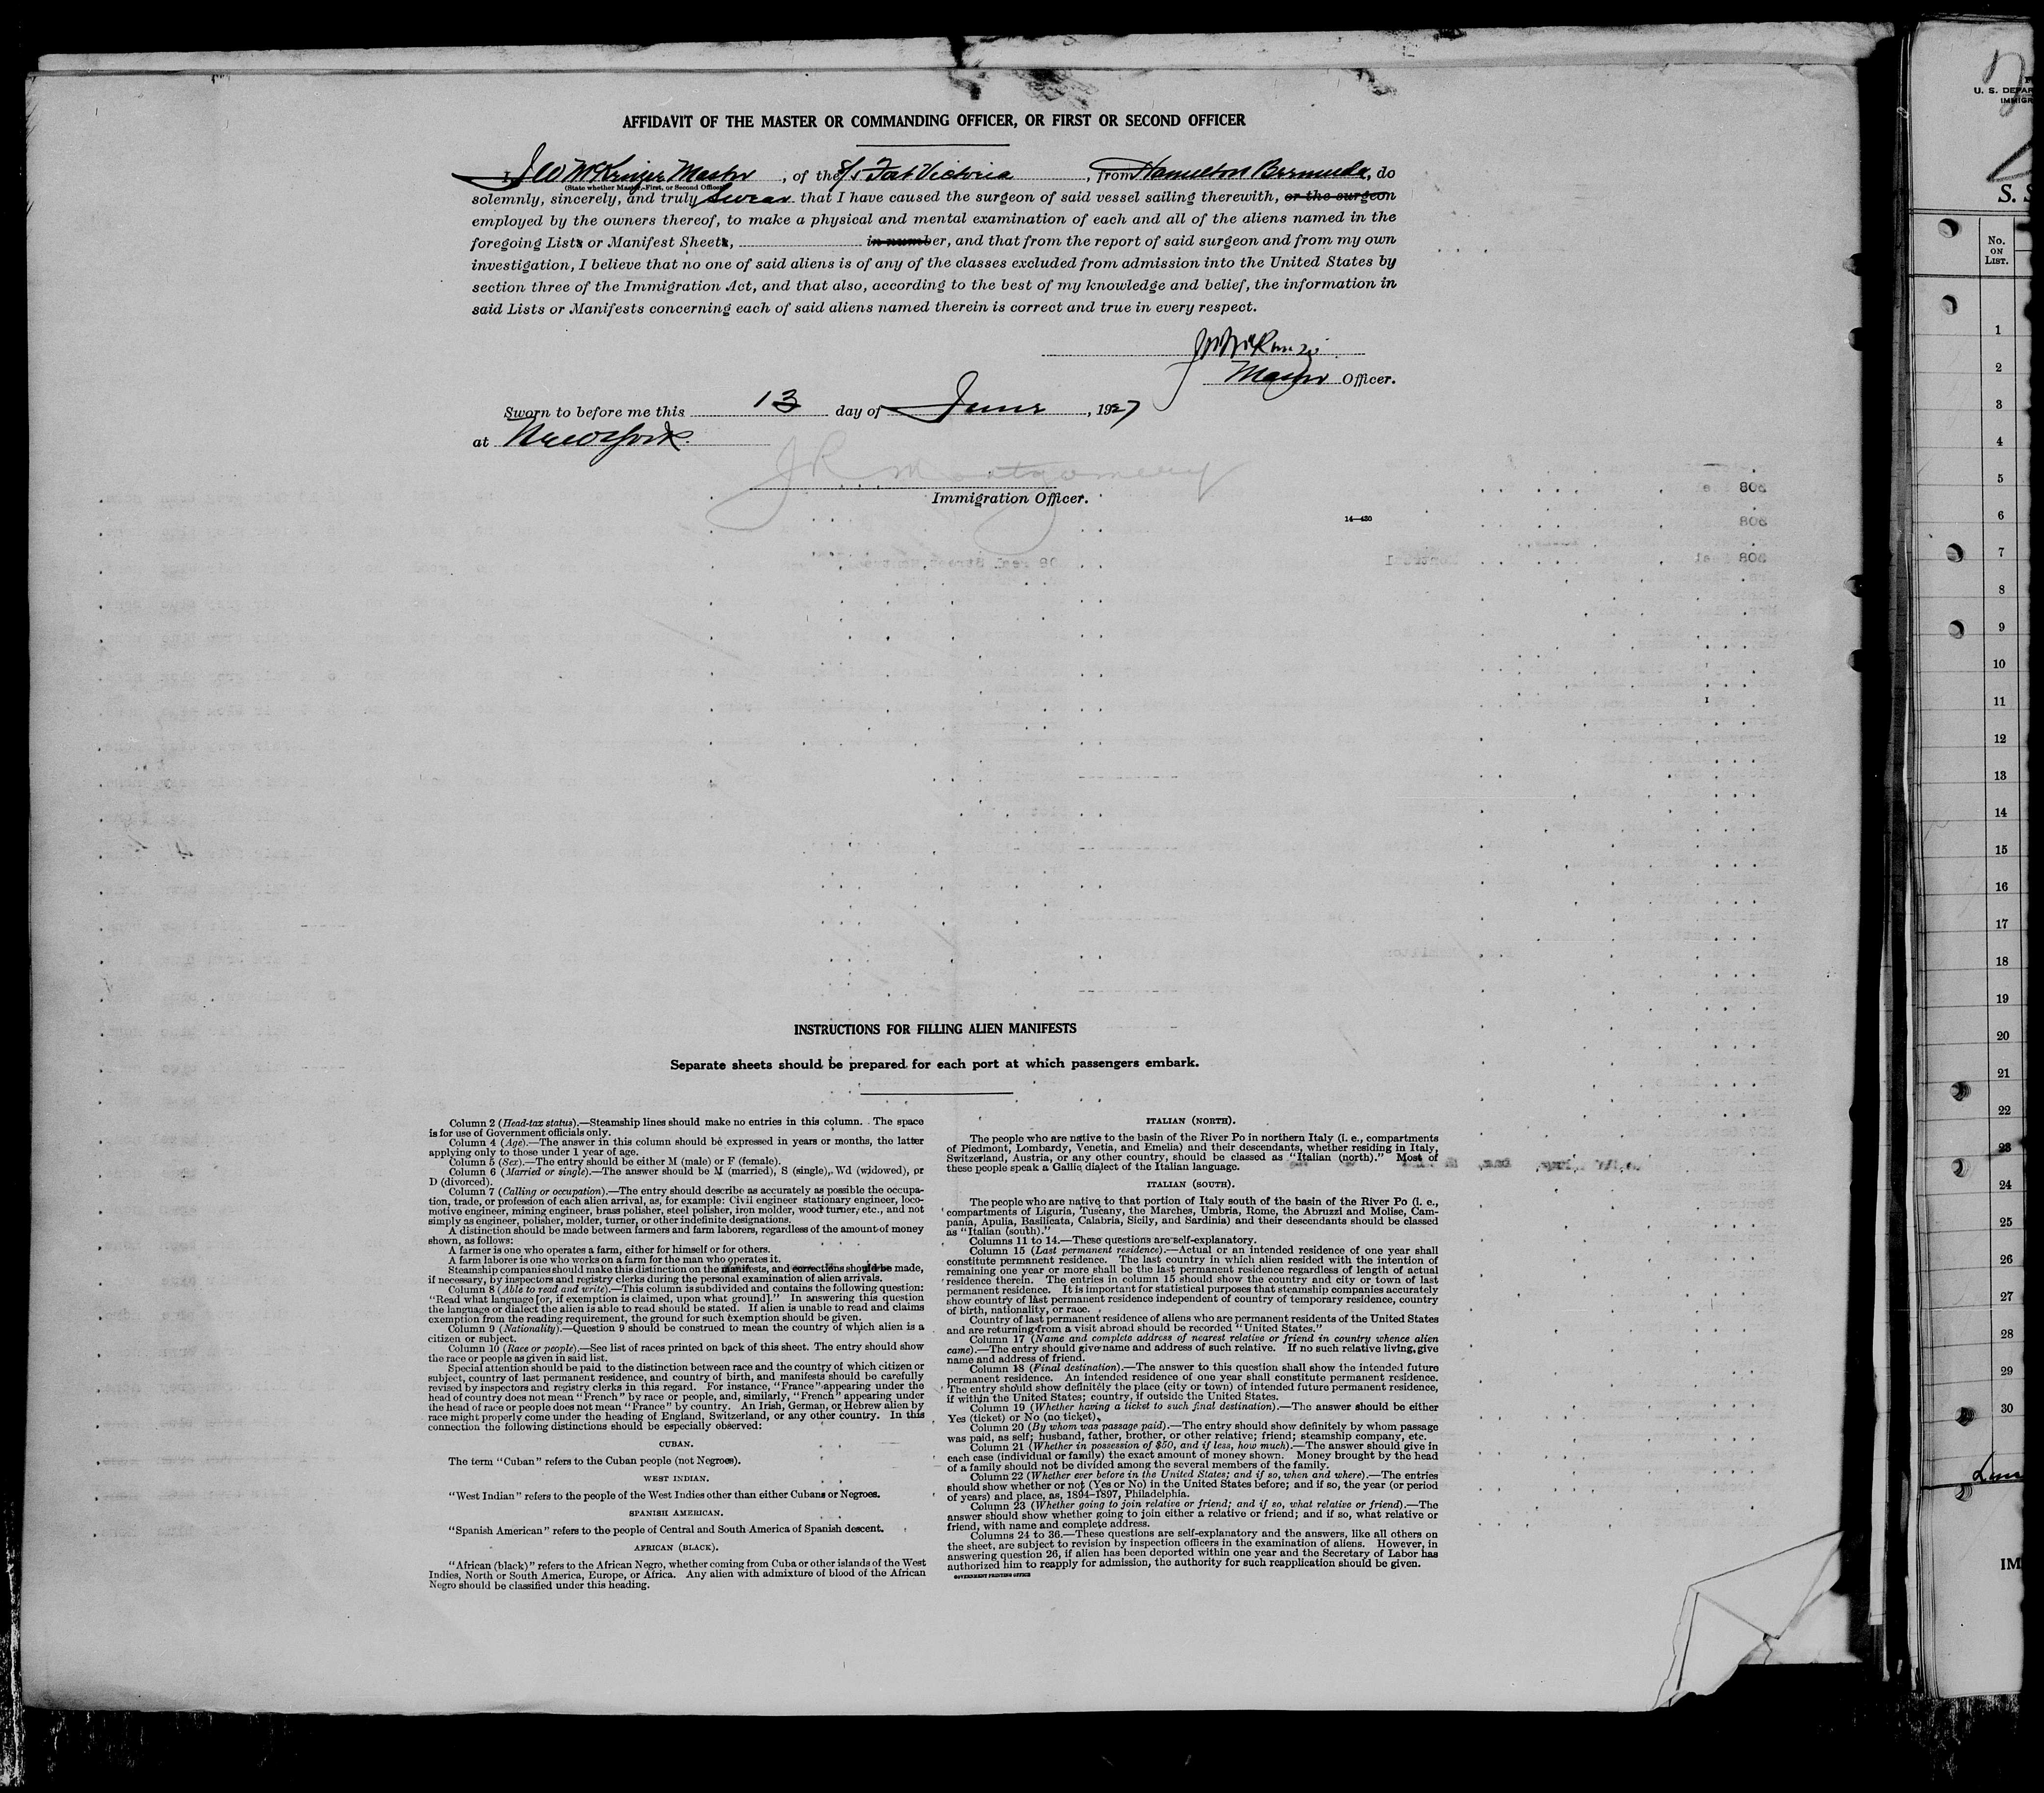 AFFIDAVIT OF THE MASTER OR COMMANDING OFFICER, OR FIRST OR SECOND OFFICER
I, J W McKenzie Master, of the S/S Fort Victoria, from Hamilton Bermuda, do
(State whether Master, First, or Second Officer)
solemnly, sincerely, and truly swear that I have caused the surgeon of said vessel sailing therewith, or the surgeon
employed by the owners thereof, to make a physical and mental examination of each and all of the aliens named in the
foregoing Lists or Manifest Sheets, in number, and that from the report of said surgeon and from my own
investigation, I believe that no one of said aliens is of any of the classes excluded from admission into the United States by
section three of the Immigration Act, and that also, according to the best of my knowledge and belief, the information in
said Lists or Manifests concerning each of said aliens named therein is correct and true in every respect.
J W McKenzie
Master Officer.
Sworn to before me this 13 day of June, 1927
at New York.
J R Montgomery
Immigration Officer.
14—430
INSTRUCTIONS FOR FILLING ALIEN MANIFESTS
Separate sheets should be prepared for each port at which passengers embark.
Column 2 (Head-tax status).—Steamship lines should make no entries in this column. The space
is for use of Government officials only.
Column 4 (Age).—The answer in this column should be expressed in years or months, the latter
applying only to those under 1 year of age.
Column 5 (Sex).—The entry should be either M (male) or F (female).
Column 6 (Married or single).—The answer should be M (married), S (single), Wd (widowed), or
D (divorced).
Column 7 (Calling or occupation).—The entry should describe as accurately as possible the occupa-
tion, trade, or profession of each alien arrival, as, for example: Civil engineer stationary engineer, loco-
motive engineer, mining engineer, brass polisher, steel polisher, iron molder, wood turner, etc., and not
simply as engineer, polisher, molder, turner, or other indefinite designations.
A distinction should be made between farmers and farm laborers, regardless of the amount of money
shown, as follows:
A farmer is one who operates a farm, either for himself or for others.
A farm laborer is one who works on a farm for the man who operates it.
Steamship companies should make this distinction on the manifests, and corrections should be made,
if necessary, by inspectors and registry clerks during the personal examination of alien arrivals.
Column 8 (Able to read and write).—This column is subdivided and contains the following question:
"Read what language [or, if exemption is claimed, upon what ground]." In answering this question
the language or dialect the alien is able to read should be stated. If alien is unable to read and claims
exemption from the reading requirement, the ground for such exemption should be given.
Column 9 (Nationality).—Question 9 should be construed to mean the country of which alien is a
citizen or subject.
Column 10 (Race or people).—See list of races printed on back of this sheet. The entry should show
the race or people as given in said list.
Special attention should be paid to the distinction between race and the country of which citizen or
subject, country of last permanent residence, and country of birth, and manifests should be carefully
revised by inspectors and registry clerks in this regard. For instance, "France" appearing under the
head of country does not mean "French" by race or people, and, similarly, "French" appearing under
the head of race or people does not mean "France" by country. An Irish, German, or Hebrew alien by
race might properly come under the heading of England, Switzerland, or any other country. In this
connection the following distinctions should be especially observed:
CUBAN.
The term "Cuban" refers to the Cuban people (not Negroes).
WEST INDIAN.
"West Indian" refers to the people of the West Indies other than either Cubans or Negroes.
SPANISH AMERICAN.
"Spanish American" refers to the people of Central and South America of Spanish descent.
AFRICAN (BLACK).
"African (black)" refers to the African Negro, whether coming from Cuba or other islands of the West
Indies, North or South America, Europe, or Africa. Any alien with admixture of blood of the African
Negro should be classified under this heading.
ITALIAN (NORTH).
The people who are native to the basin of the River Po in northern Italy (i. e., compartments
of Piedmont, Lombardy, Venetia, and Emelia) and their descendants, whether residing in Italy,
Switzerland, Austria, or any other country, should be classed as "Italian (north)." Most of
these people speak a Gallic dialect of the Italian language.
ITALIAN (SOUTH).
The people who are native to that portion of Italy south of the basin of the River Po (i. e.,
compartments of Liguria, Tuscany, the Marches, Umbria, Rome, the Abruzzi and Molise, Cam-
pania, Apulia, Basilicata, Calabria, Sicily, and Sardinia) and their descendants should be classed
as "Italian (south)."
Columns 11 to 14.—These questions are self-explanatory.
Column 15 (Last permanent residence).—Actual or an intended residence of one year shall
constitute permanent residence. The last country in which alien resided with the intention of
remaining one year or more shall be the last permanent residence regardless of length of actual
residence therein. The entries in column 15 should show the country and city or town of last
permanent residence. It is important for statistical purposes that steamship companies accurately
show country of last permanent residence independent of country of temporary residence, country
of birth, nationality, or race.
Country of last permanent residence of aliens who are permanent residents of the United States
and are returning from a visit abroad should be recorded "United States."
Column 17 (Name and complete address of nearest relative or friend in country whence alien
came).—The entry should give name and address of such relative. If no such relative living, give
name and address of friend.
Column 18 (Final destination).—The answer to this question shall show the intended future
permanent residence. An intended residence of one year shall constitute permanent residence.
The entry should show definitely the place (city or town) of intended future permanent residence,
if within the United States; country, if outside the United States.
Column 19 (Whether having a ticket to such final destination).—The answer should be either
Yes (ticket) or No (no ticket).
Column 20 (By whom was passage paid).—The entry should show definitely by whom passage
was paid, as self; husband, father, brother, or other relative; friend; steamship company, etc.
Column 21 (Whether in possession of $50, and if less, how much).—The answer should give in
each case (individual or family) the exact amount of money shown. Money brought by the head
of a family should not be divided among the several members of the family.
Column 22 (Whether ever before in the United States; and if so, when and where).—The entries
should show whether or not (Yes or No) in the United States before; and if so, the year (or period
of years) and place, as, 1894–1897, Philadelphia.
Column 23 (Whether going to join relative or friend; and if so, what relative or friend).—The
answer should show whether going to join either a relative or friend; and if so, what relative or
friend, with name and complete address.
Columns 24 to 36.—These questions are self-explanatory and the answers, like all others on
the sheet, are subject to revision by inspection officers in the examination of aliens. However, in
answering question 26, if alien has been deported within one year and the Secretary of Labor has
authorized him to reapply for admission, the authority for such reapplication should be given.
GOVERNMENT PRINTING OFFICE
U. S. DEPAR
IMMIGR
S. S
No.
ON
LIST.
1
2
3
4
5
6
7
8
9
10
11
12
13
14
15
16
17
18
19
20
21
22
23
24
25
26
27
28
29
30
IM